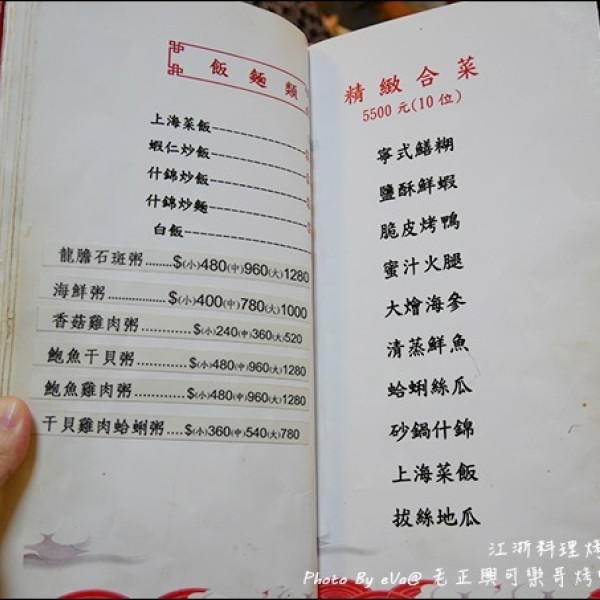 飯麵類
上海菜飯
蝦仁炒飯
什錦炒飯
什錦炒麵
白飯
龍膽石斑粥........$(小)480(中)960(大)1280
海鮮粥.................$(小)400(中)780(大)1000
香菇雞肉粥............$(小)240(中)360(大)520
鮑魚干貝粥..........$(小)480(中)960(大)1280
鮑魚雞肉粥..........$(小)480(中)960(大)1280
干貝雞肉蛤蜊粥....$(小)360(中)540(大)780
精緻合菜
5500元(10位)
寧式鱔糊
鹽酥鮮蝦
脆皮烤鴨
蜜汁火腿
大燴海參
清蒸鮮魚
蛤蜊絲瓜
砂鍋什錦
上海菜飯
拔絲地瓜
江浙料理烤
Photo By eVa@ 老正興可樂哥烤鴨